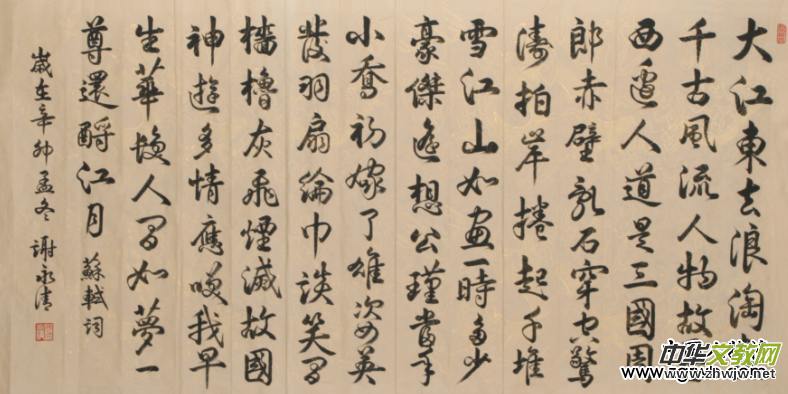 大江東去浪淘
千古風流人物故
西邊人道是三國周
郎赤壁乱石穿空驚
濤拍岸捲起千堆
雪江山如畫一時多少
豪傑遙想公瑾當年
小喬初嫁了雄姿英
發羽扇綸巾談笑間
檣櫓灰飛煙滅故國
神遊多情應咲我早
生華髮人間如夢一
尊還酹江月 蘇軾詞
歲在辛卯孟冬 謝永清
中华文教网
www.zhwjw.net